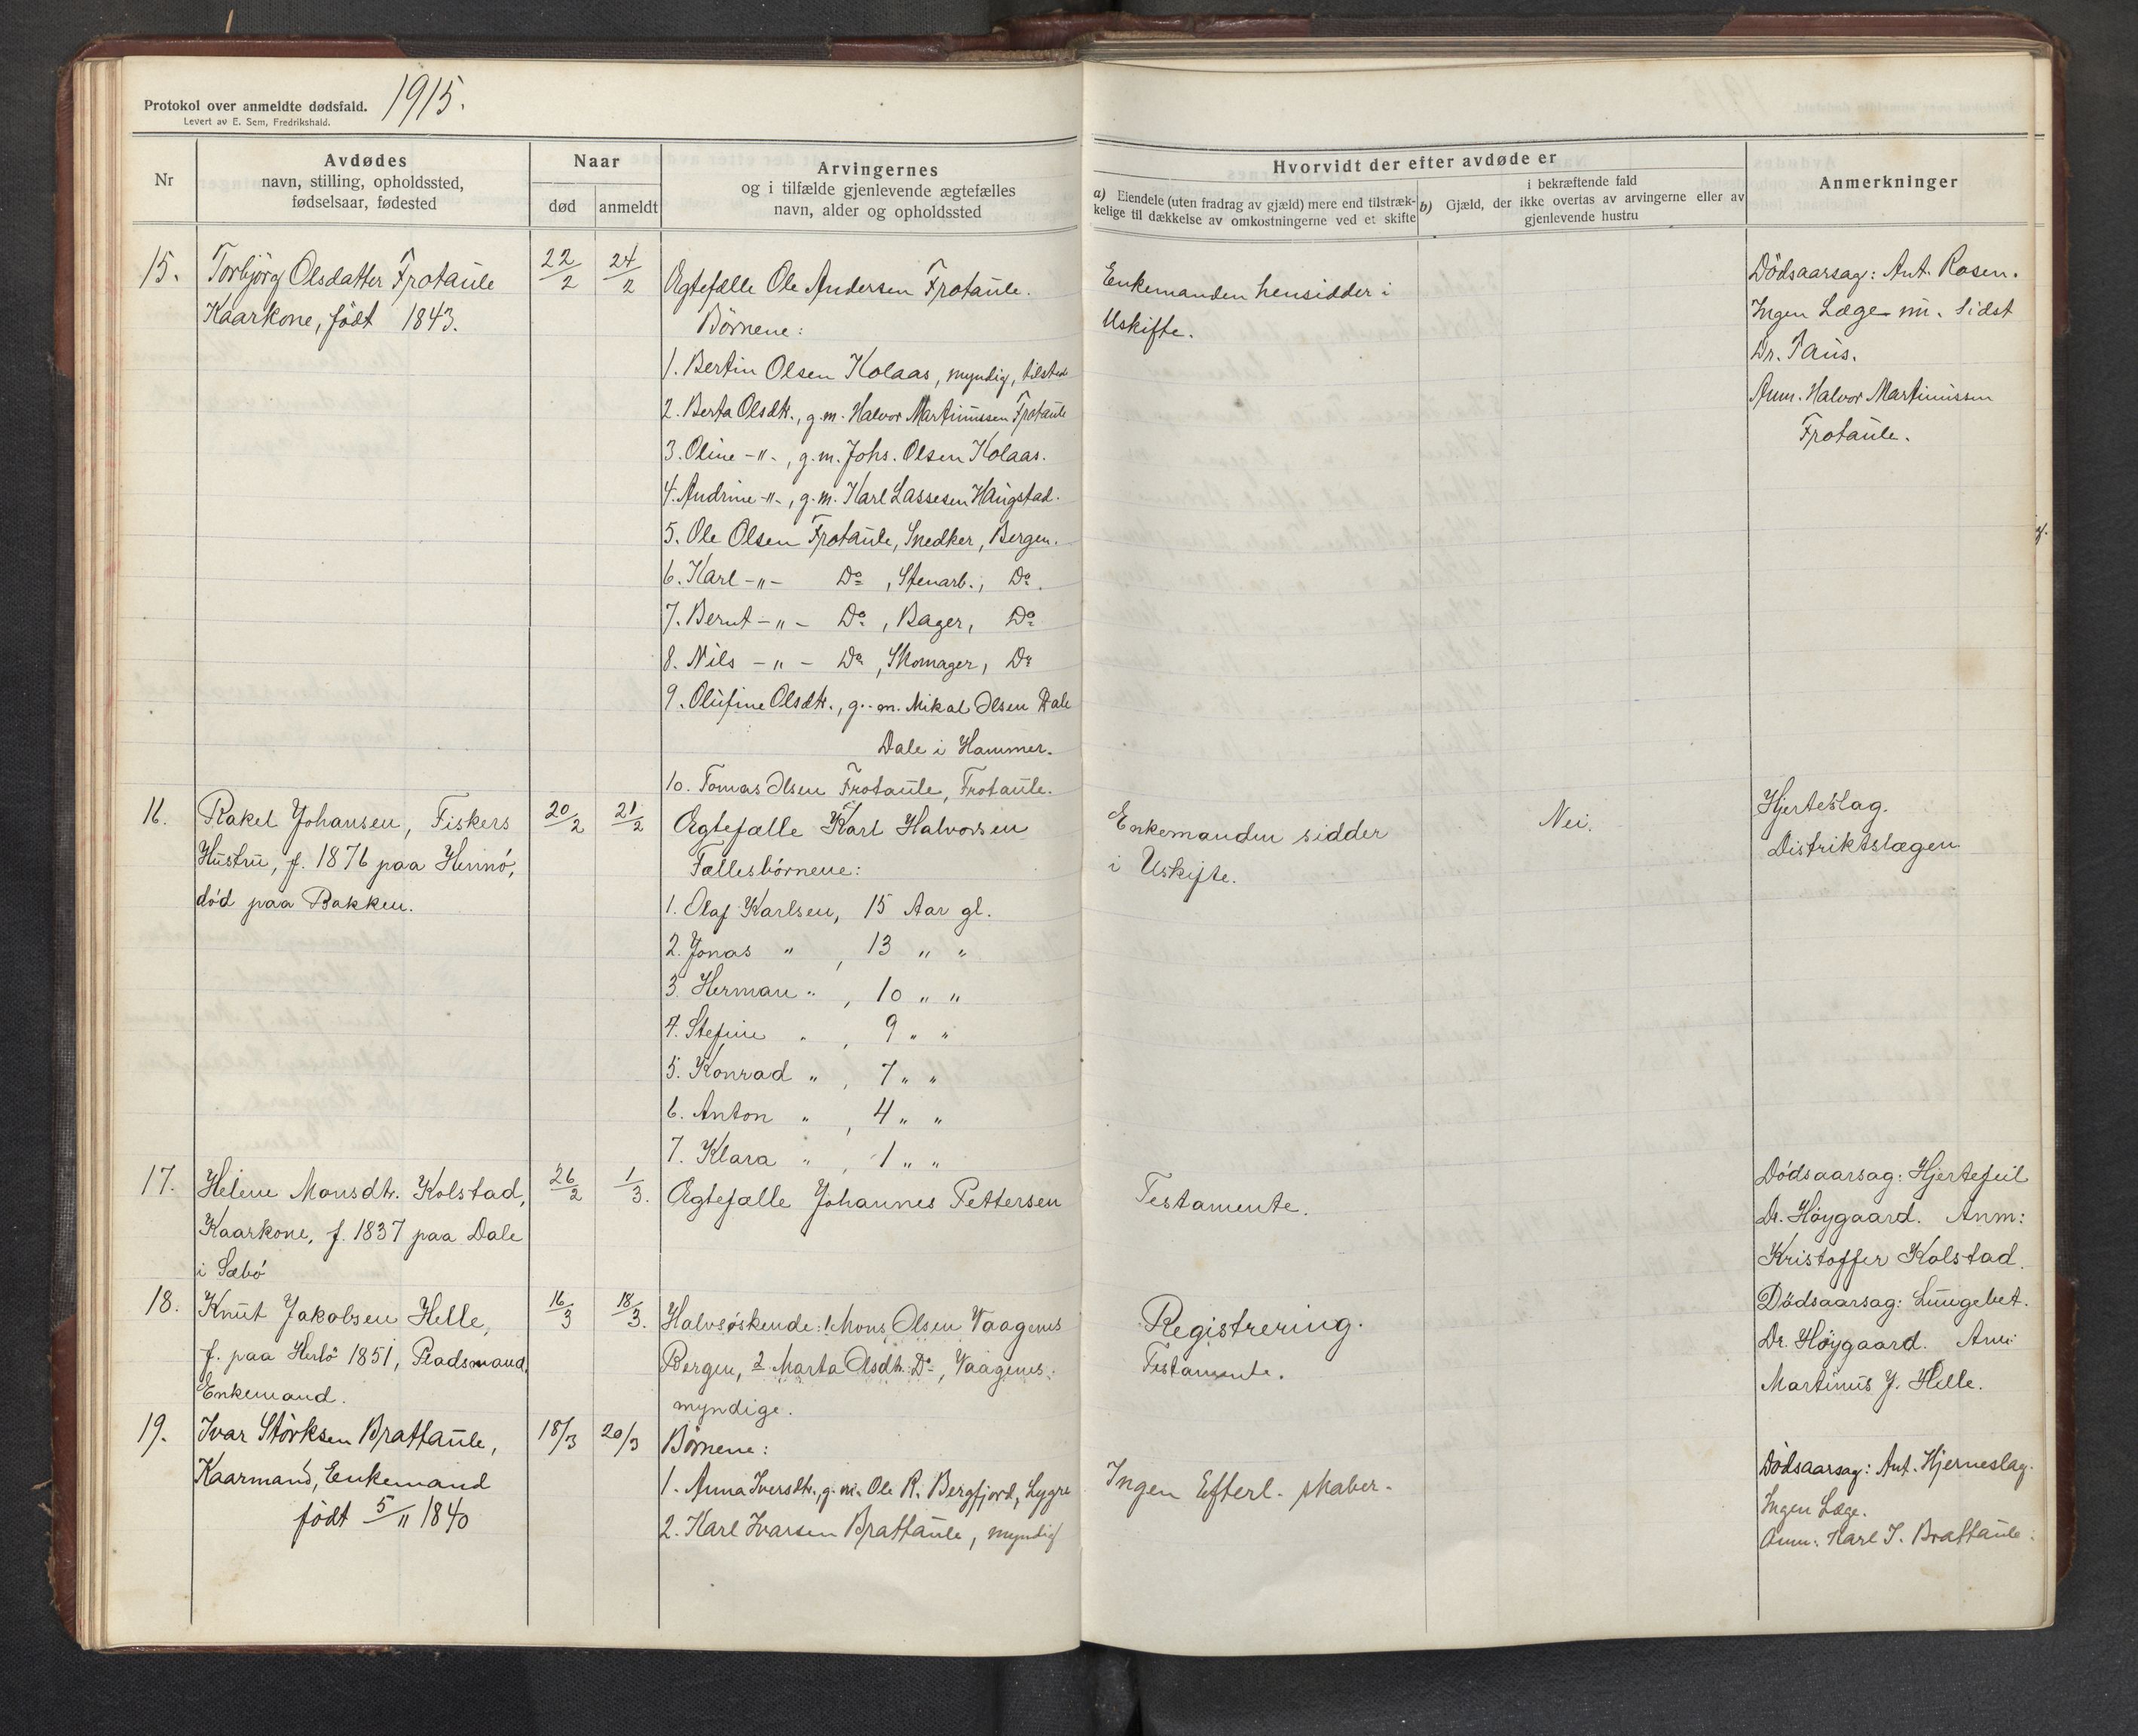 Protokol over anmeldte dødsfald. 1915.
Levert av E. Sem, Fredrikshald.
Nr
Avdødes
navn, stilling, opholdssted,
fødselsaar, fødested
Naar
død
anmeldt
Arvingernes
og i tilfælde gjenlevende ægtefælles
navn, alder og opholdssted
Hvorvidt der efter avdøde er
a) Eiendele (uten fradrag av gjæld) mere end tilstræk-
kelige til dækkelse av omkostningerne ved et skifte
i bekræftende fald
b) Gjæld, der ikke overtas av arvingerne eller av
gjenlevende hustru
Anmerkninger
15.
Torbjörg Olsdatter Frotaule
Kaarkone, født 1843.
22/2
24/2
Ægtefælle Ole Andersen Frotaule.
Börnene:
1. Bertin Olsen Kolaas, myndig, tilsted
2. Berta Olsdtr., g.m. Halvor Martinussen Frotaule
3. Oline -"-, g.m. Johs. Olsen Kolaas.
4. Andrine -"-, g.m. Karl Lassesen Haugstad.
5. Ole Olsen Frotaule, Snedker, Bergen.
6. Karl -"- Do, Stenarb., Do.
7. Bernt -"- Do, Bager, Do
8. Nils -"- Do, Skomager, Do
9. Olufine Olsdtr., g.m. Mikal Olsen Dale
Dale i Hammer.
10. Tomas Olsen Frotaule, Frotaule.
Enkemanden hensidder i
Uskifte.
Dödsaarsag: Ant. Rosen.
Ingen Læge nu. Sidst
Dr. Paus.
Anm. Halvor Martinussen
Frotaule.
16.
Rakel Johansen, Fiskers
Hustru, f. 1876 paa Hennö,
död paa Bakken.
20/2
21/2
Ægtefælle Karl Halvorsen
Fællesbörnene:
1. Olaf Karlsen, 15 Aar gl.
2. Jonas ", 13 " "
3. Herman ", 10 " "
4. Stefine ", 9 " "
5. Konrad ", 7 " "
6. Anton ", 4 " "
7. Klara ", 1 " "
Enkemanden sidder
i Uskifte.
Nei.
Hjerteslag.
Distriktslægen.
17.
Helene Monsdtr. Kolstad,
Kaarkone, f. 1837 paa Dale
i Sæbö
26/2
1/3.
Ægtefælle Johannes Pettersen
Testamente.
Dödsaarsag: Hjertefeil
Dr. Höygaard. Anm:
Kristoffer Kolstad.
18.
Knut Jakobsen Helle,
f. paa Herlö 1851, Pladsmand,
Enkemand.
16/3
18/3.
Halvsöskende: 1 Mons Olsen Vaagenes
Bergen, 2 Marta Olsdtr. Do, Vaagenes.
myndige.
Registrering.
Testamente.
Dödsaarsag: Lungebet.
Dr. Höygaard. Anm:
Martinus J. Helle.
19.
Ivar Störksen Brattaule,
Kaarmand, Enkemand
födt 5/11 1840
18/3
20/3
Börnene:
1. Anna Iversdtr., g.m. Ole R. Bergfjord, Lygre
2. Karl Ivarsen Brattaule, myndig
Ingen Efterl.skaber.
Dödsaarsag: Ant. Hjerneslag.
Ingen Læge.
Anm: Karl I. Brattaule.